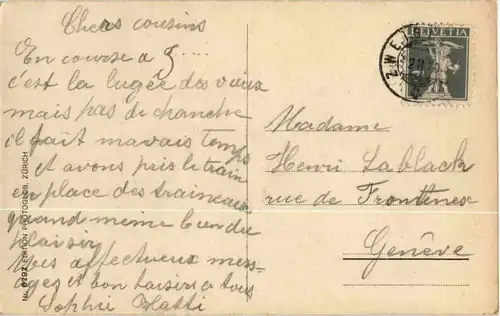 Chers cousins
En course a G....
c'est la lugée des vieux
mais pas de chanche
il fait mavais temps
et avons pris le train
en place des traineaux
quand meme bien du
plaisir
Mes affectueux mess-
ages et bon baisers a tous
Sophie
Madame
Henri Lablack
rue de Frontenex
Genêve
HELVETIA
ZWEI
Nr. 6297 EDITION PHOTOGLOB, ZÜRICH